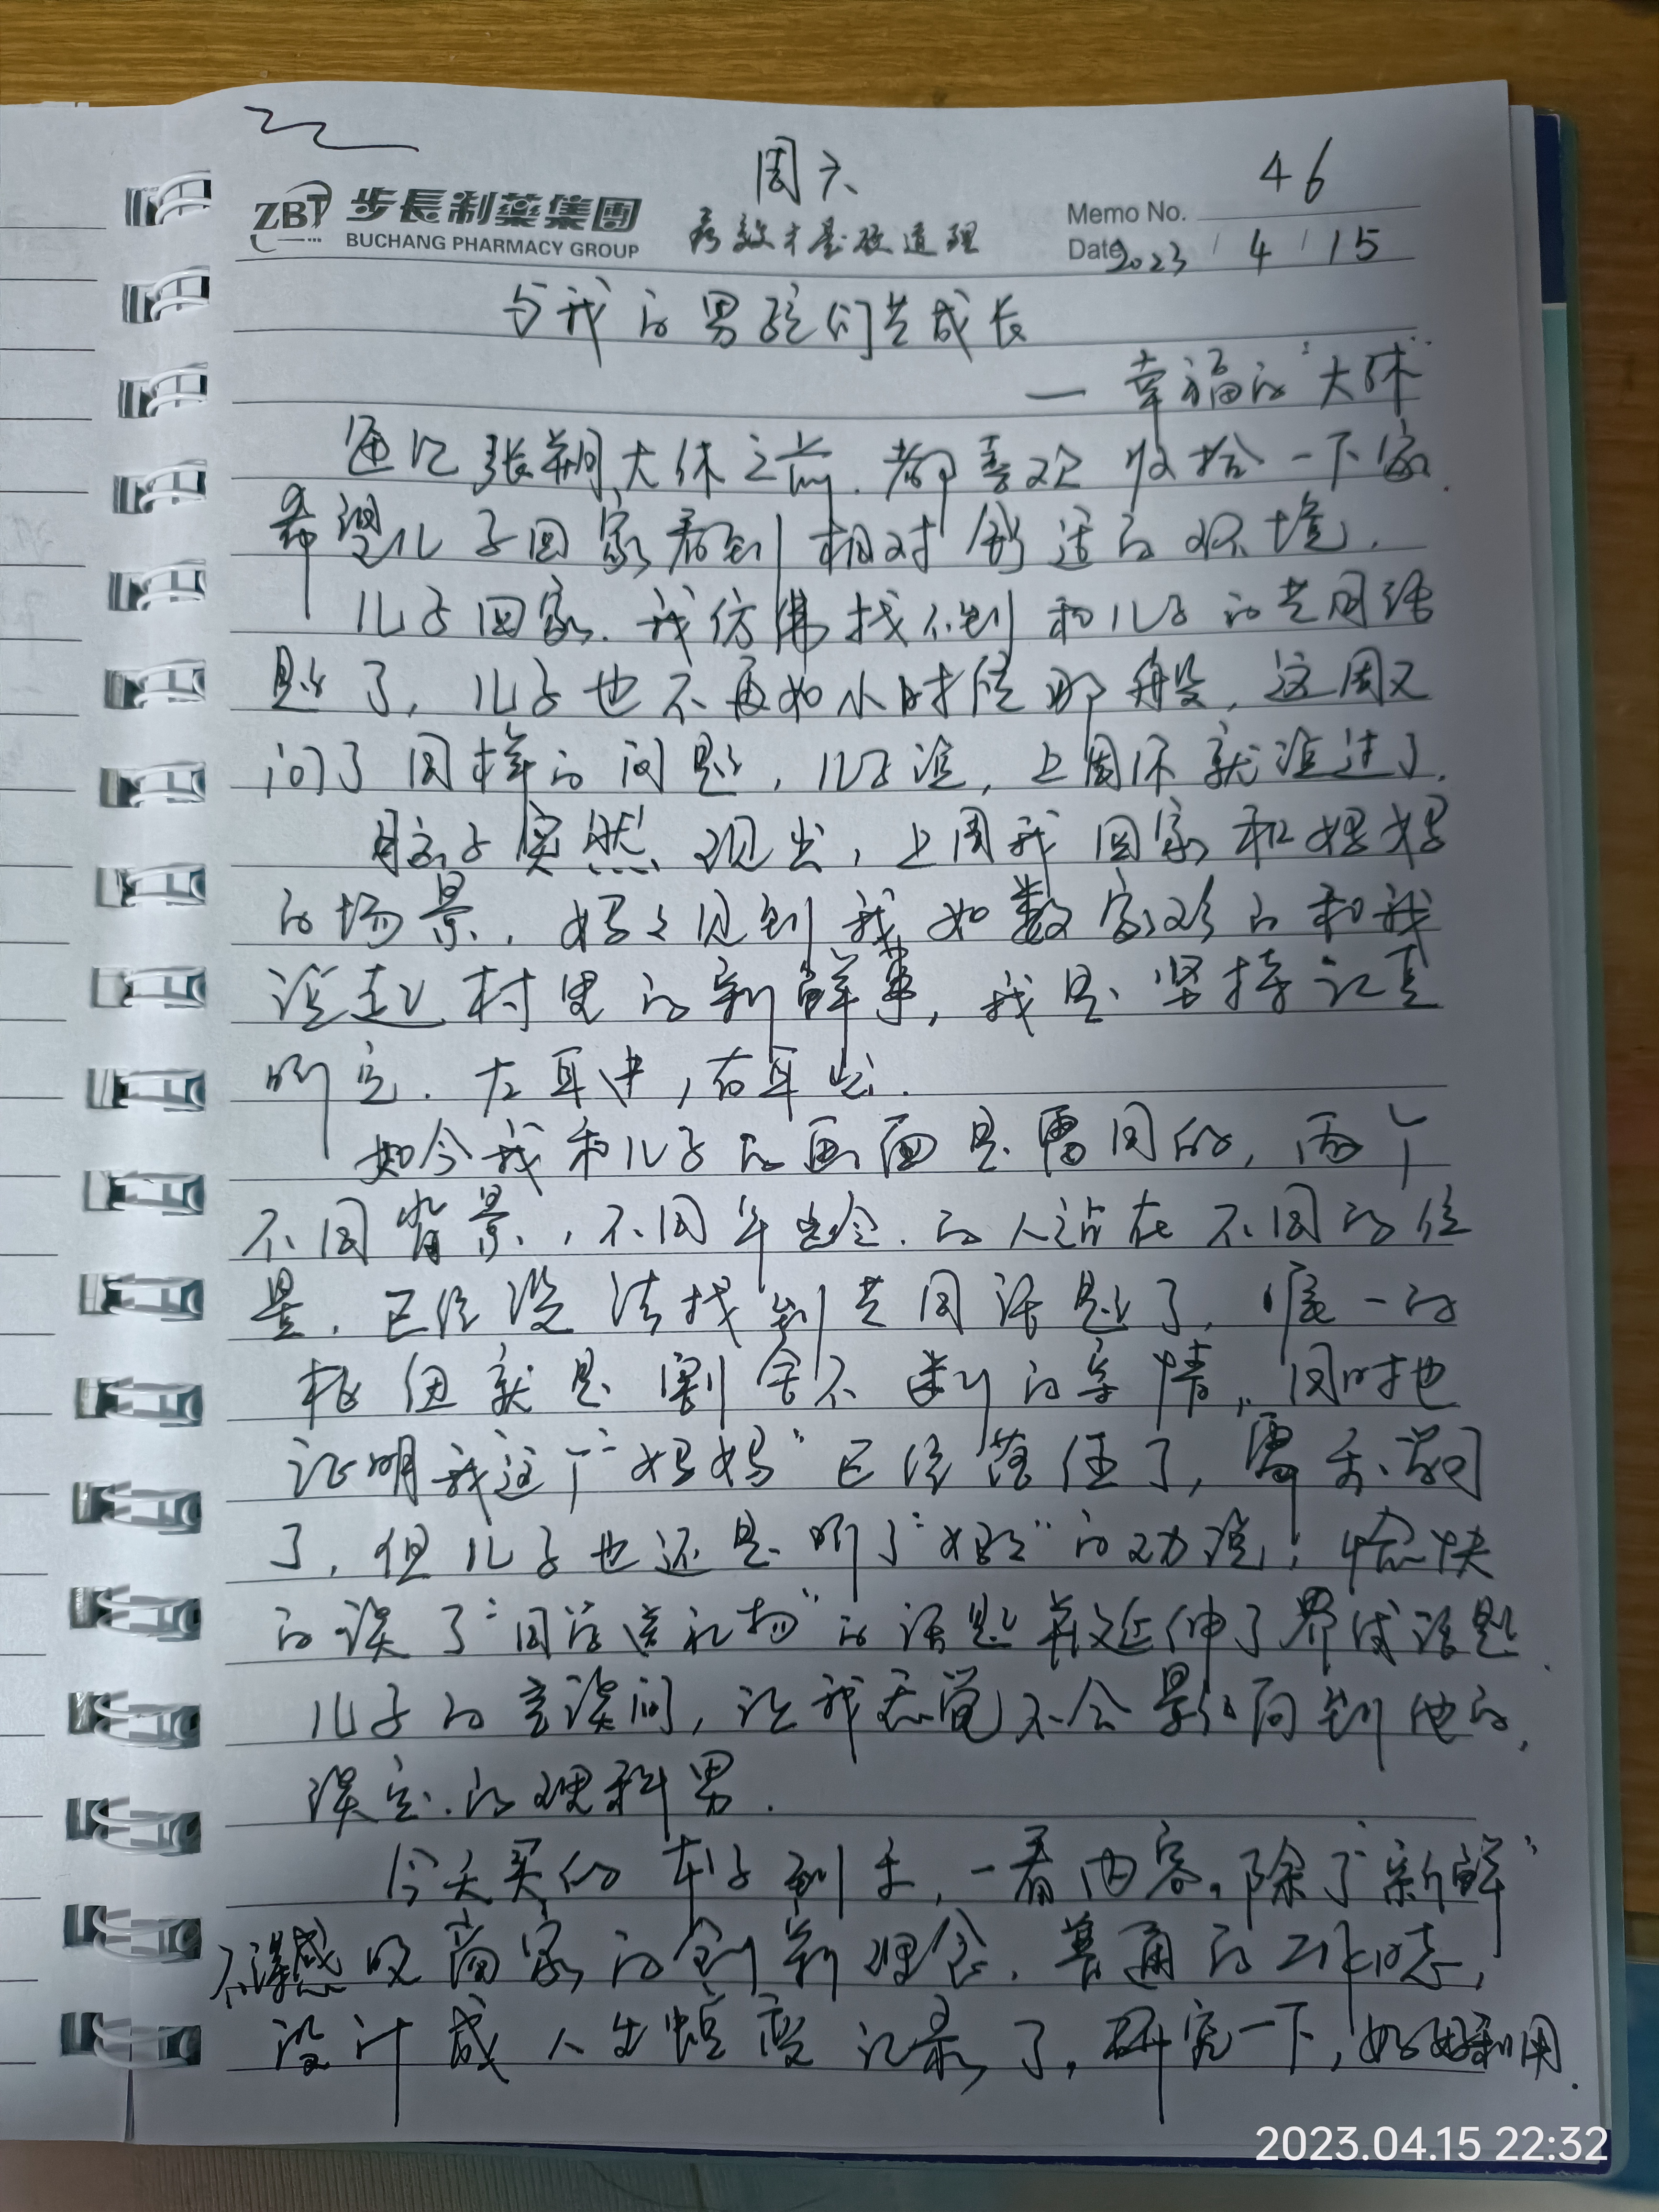 周六
46
ZBT 步長制藥集團
BUCHANG PHARMACY GROUP
疗效才是硬道理
Memo No.
Date 2023 / 4 / 15
与我的男孩们共成长
— 幸福的“大休”
每次张朔大休之前,都喜欢收拾一下家.
希望儿子回家看到相对舒适的环境.
儿子回家.我仿佛找不到和儿子的共同话
题了,儿子也不再如小时候那般,这周又
问了同样的问题,儿子说,上周你就说过了.
脑子突然现出,上周我回家和妈妈
的场景,妈妈见到我如数家珍的和我
说起村里的新鲜事,我是坚持认真
听完.左耳中,右耳出.
如今我和儿子的画面是雷同的,两个
不同背景,不同年龄.的人站在不同的位
置.已经没法找到共同话题了,唯一的
枢纽就是割舍不断的亲情,同时也
证明我这个“妈妈”已经落伍了,需要学习
了,但儿子也还是听了“妈妈”的劝说,愉快
的谈了“同学送礼物”的话题并延伸了界域话题.
儿子的言谈间,让我忽觉不会影响到他的,
淡定.的理科男.
今天买的本子到手,一看内容,除了“新鲜”
不得感叹商家的创新理念,普通的工作志,
设计成人生蜕变记录了,研究一下,好好利用.
2023.04.15 22:32